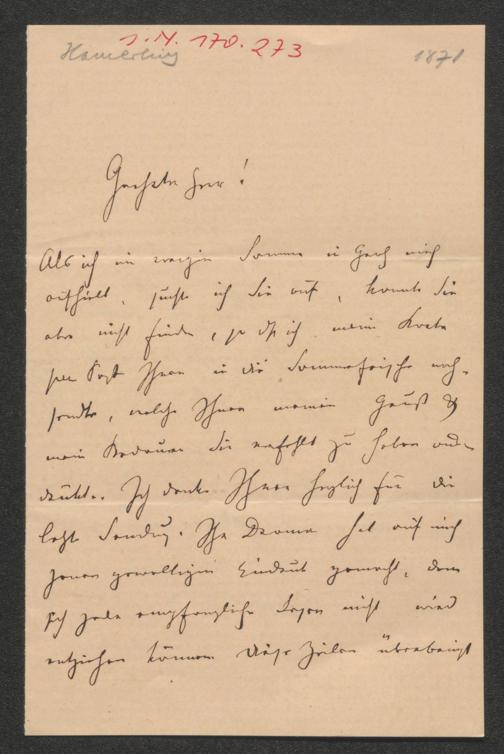 I.N. 170.273
Hamerling 1871
Geehrter Herr!
Als ich im vorigen Sommer in Graz mich
aufhielt, suchte ich Sie auf, konnte Sie
aber nicht finden, so dß ich meine Karte
per Post Ihnen in die Sommerfrische nach-
sendte, welche Ihnen meinen Gruß &
mein Bedauern Sie verfehlt zu haben aus-
drückte. Ich danke Ihnen herzlich für die
letzte Sendung. Ihr Drama hat auf mich
jenen gewaltigen Eindruck gemacht, dem
sich jeder empfängliche Leser nicht wird
entziehen können. Diese Zeilen überbringt